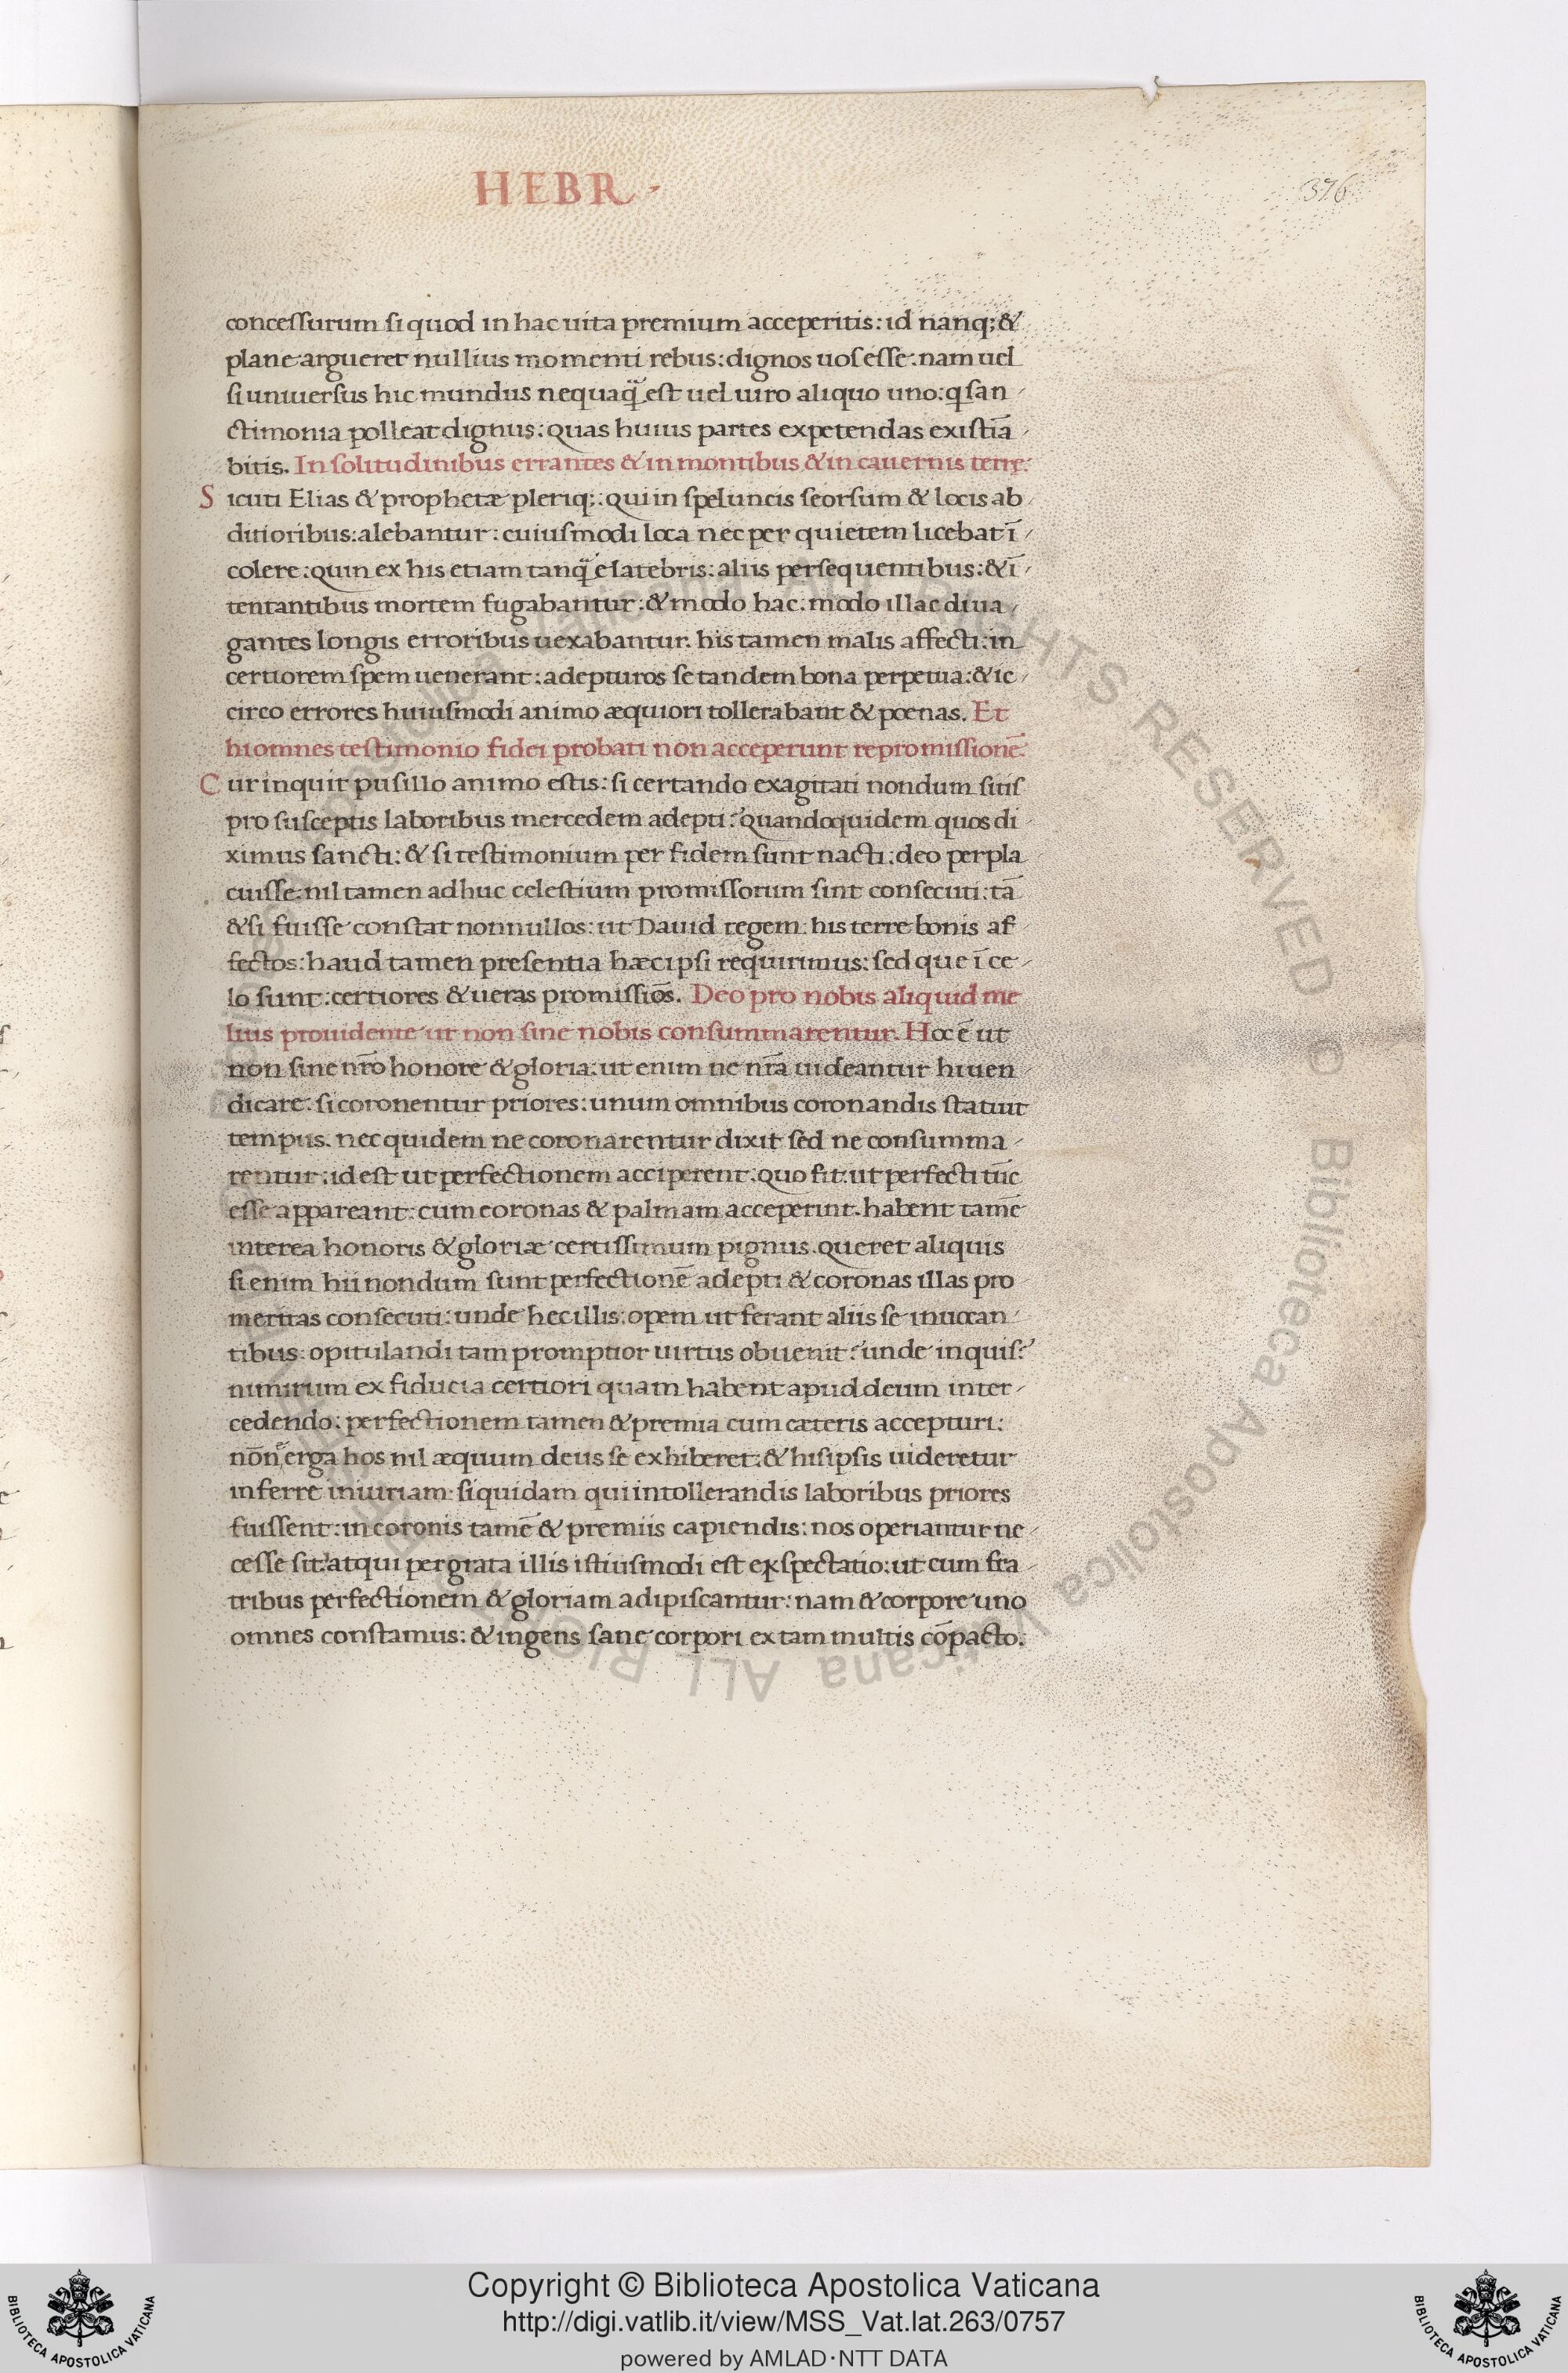 HEBR.
376
concessurum si quod in hac uita premium acceperitis: id nanq; &
plane argueret nullius momenti rebus: dignos uos esse. nam uel
si uniuersus hic mundus nequaq̃ est uel uiro aliquo uno: q san-
ctimonia polleat dignus: quas huius partes expetendas existiā
bitis. In solitudinibus errantes & in montibus & in cauernis terrę.
Sicuti Elias & prophetæ pleriq;: qui in speluncis seorsum & locis ab
ditioribus: alebantur: cuiusmodi loca nec per quietem licebat ī-
colere: quin ex his etiam tanq̃ e latebris: aliis persequentibus: & ī-
tentantibus mortem fugabantur: & modo hac: modo illac diua-
gantes longis erroribus uexabantur. his tamen malis affecti: in
certiorem spem uenerant: adepturos se tandem bona perpetua: & ic-
circo errores huiusmodi animo æquiori tollerabant & pœnas. Et
hi omnes testimonio fidei probati non acceperunt repromissionē.
Cur inquit pusillo animo estis: si certando exagitati nondum sitis
pro susceptis laboribus mercedem adepti? quandoquidem quos di
ximus sancti: & si testimonium per fidem sunt nacti: deo perpla
cuisse: nil tamen adhuc celestium promissorum sint consecuti: tā
& si fuisse constat nonnullos: ut Dauid regem: his terre bonis af
fectos: haud tamen presentia hæc ipsi requirimus: sed que ī ce-
lo sunt: certiores & ueras promissiōs. Deo pro nobis aliquid me
lius prouidente ut non sine nobis consummarentur. Hoc ē ut
non sine nr̄o honore & gloria: ut enim ne nr̄a uideantur hi uen
dicare: si coronentur priores: unum omnibus coronandis statuit
tempus. nec quidem ne coronarentur dixit sed ne consumma-
rentur: id est ut perfectionem acciperent: quo fit: ut perfecti tūc
esse appareant: cum coronas & palmam acceperint. habent tamē
interea honoris & gloriæ certissimum pignus. queret aliquis
si enim hi nondum sunt perfectionē adepti & coronas illas pro
meritas consecuti: unde hec illis: opem ut ferant aliis se inuocan-
tibus: opitulandi tam promptior uirtus obuenit? unde inquis?
nimirum ex fiducia certiori quam habent apud deum inter-
cedendo: perfectionem tamen & premia cum cæteris accepturi:
nōn erga hos nil æquum deus se exhiberet: & his ipsis uideretur
inferre iniuriam: siquidam qui in tollerandis laboribus priores
fuissent: in coronis tamē & premiis capiendis: nos operiantur ne-
cesse sit? atqui pergrata illis istiusmodi est expectatio: ut cum fra
tribus perfectionem & gloriam adipiscantur: nam & corpore uno
omnes constamus: & ingens sane corpori ex tam multis cōpacto.
Biblioteca Apostolica Vaticana ALL RIGHTS RESERVED ©
Copyright © Biblioteca Apostolica Vaticana
http://digi.vatlib.it/view/MSS_Vat.lat.263/0757
powered by AMLAD·NTT DATA
BIBLIOTECA APOSTOLICA VATICANA
BIBLIOTECA APOSTOLICA VATICANA